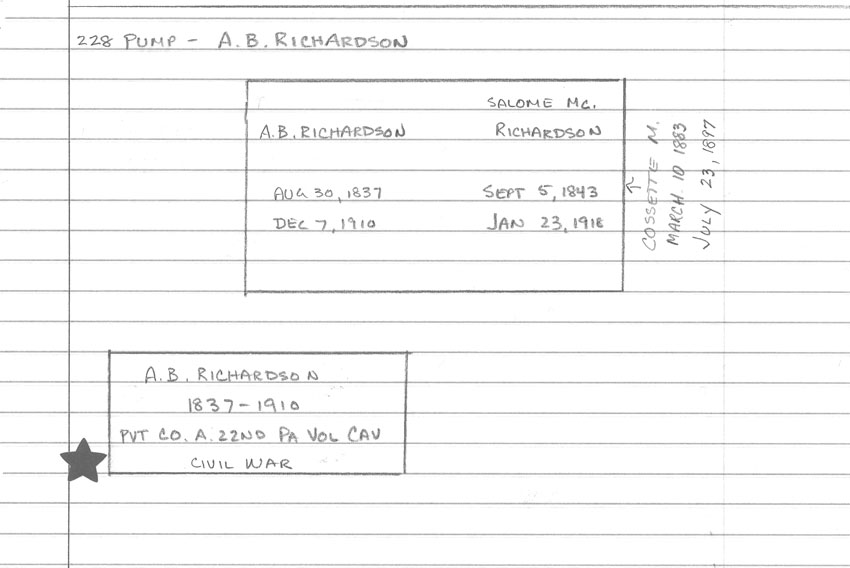 228 PUMP - A.B. RICHARDSON
SALOME MC.
A.B. RICHARDSON RICHARDSON
AUG 30, 1837 SEPT 5, 1843
DEC 7, 1910 JAN 23, 1918
COSSETTE M.
MARCH 10 1883
JULY 23, 1897
A.B. RICHARDSON
1837-1910
PVT CO. A. 22ND PA VOL CAV
CIVIL WAR